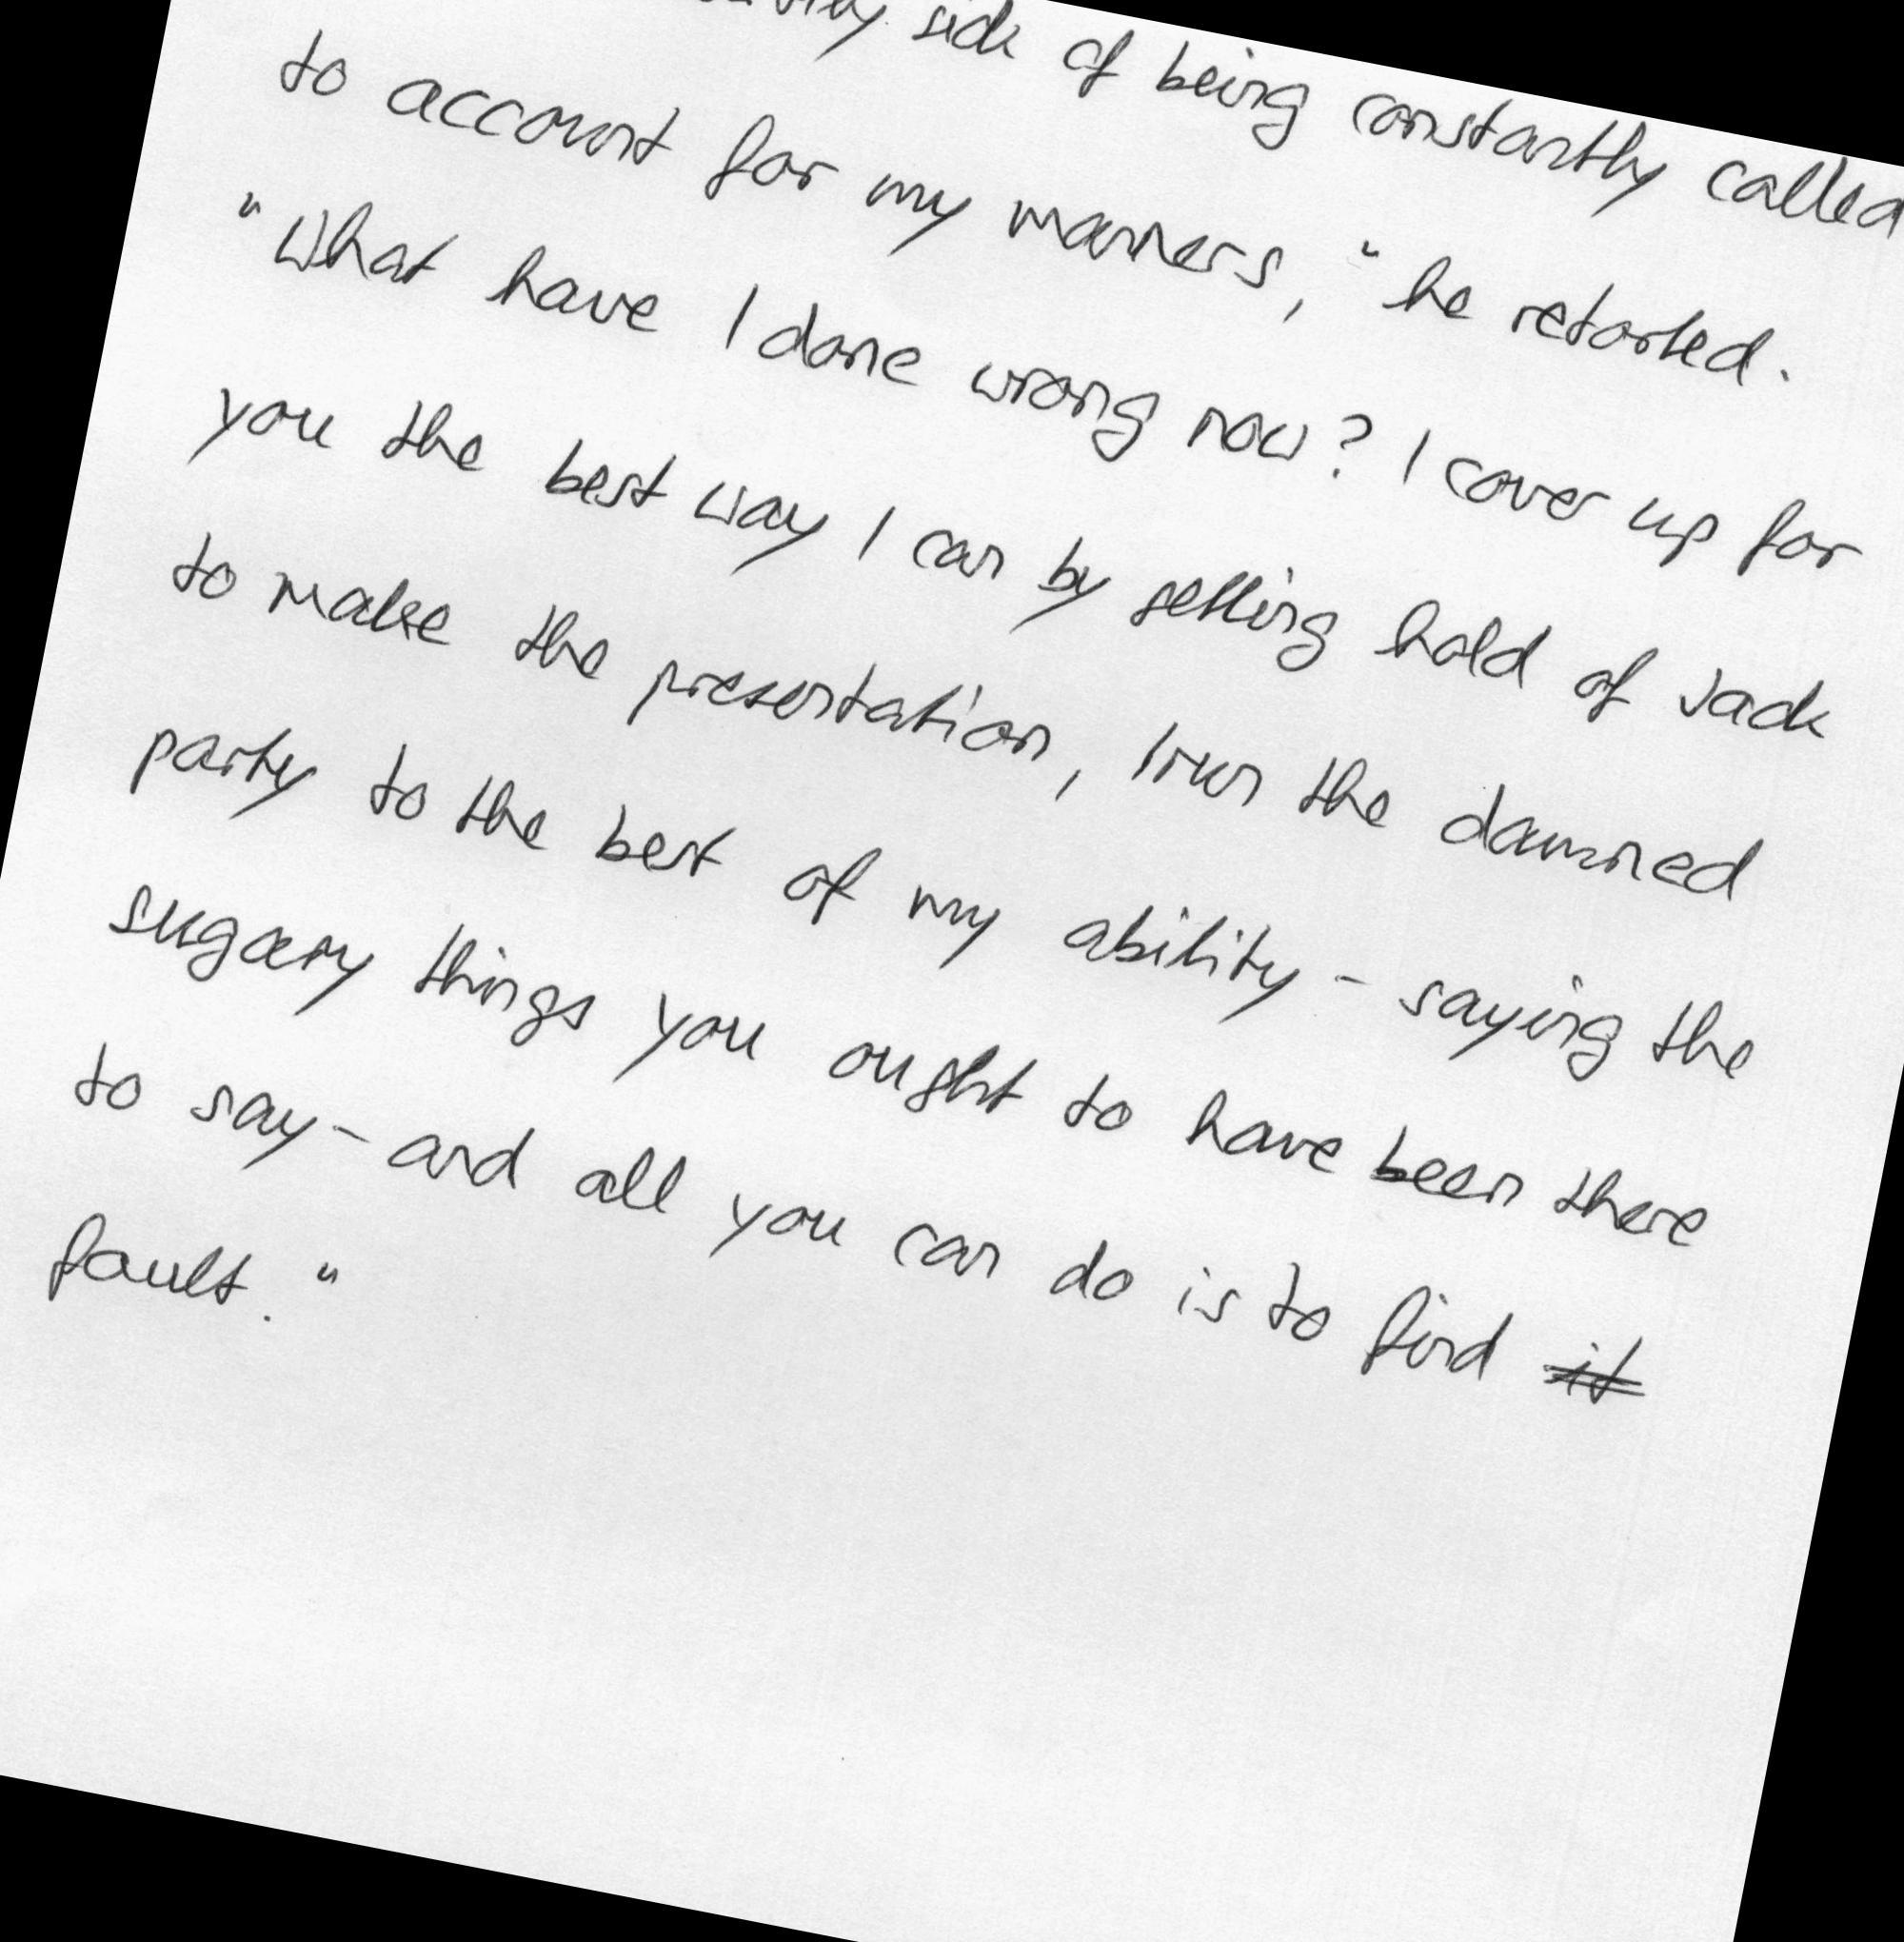 side of being constantly called
to account for my manners," he retorted.
"What have I done wrong now? I cover up for
you the best way I can by getting hold of Jack
to make the presentation, I run the damned
party to the best of my ability - saying the
sugary things you ought to have been there
to say - and all you can do is to find it
fault."